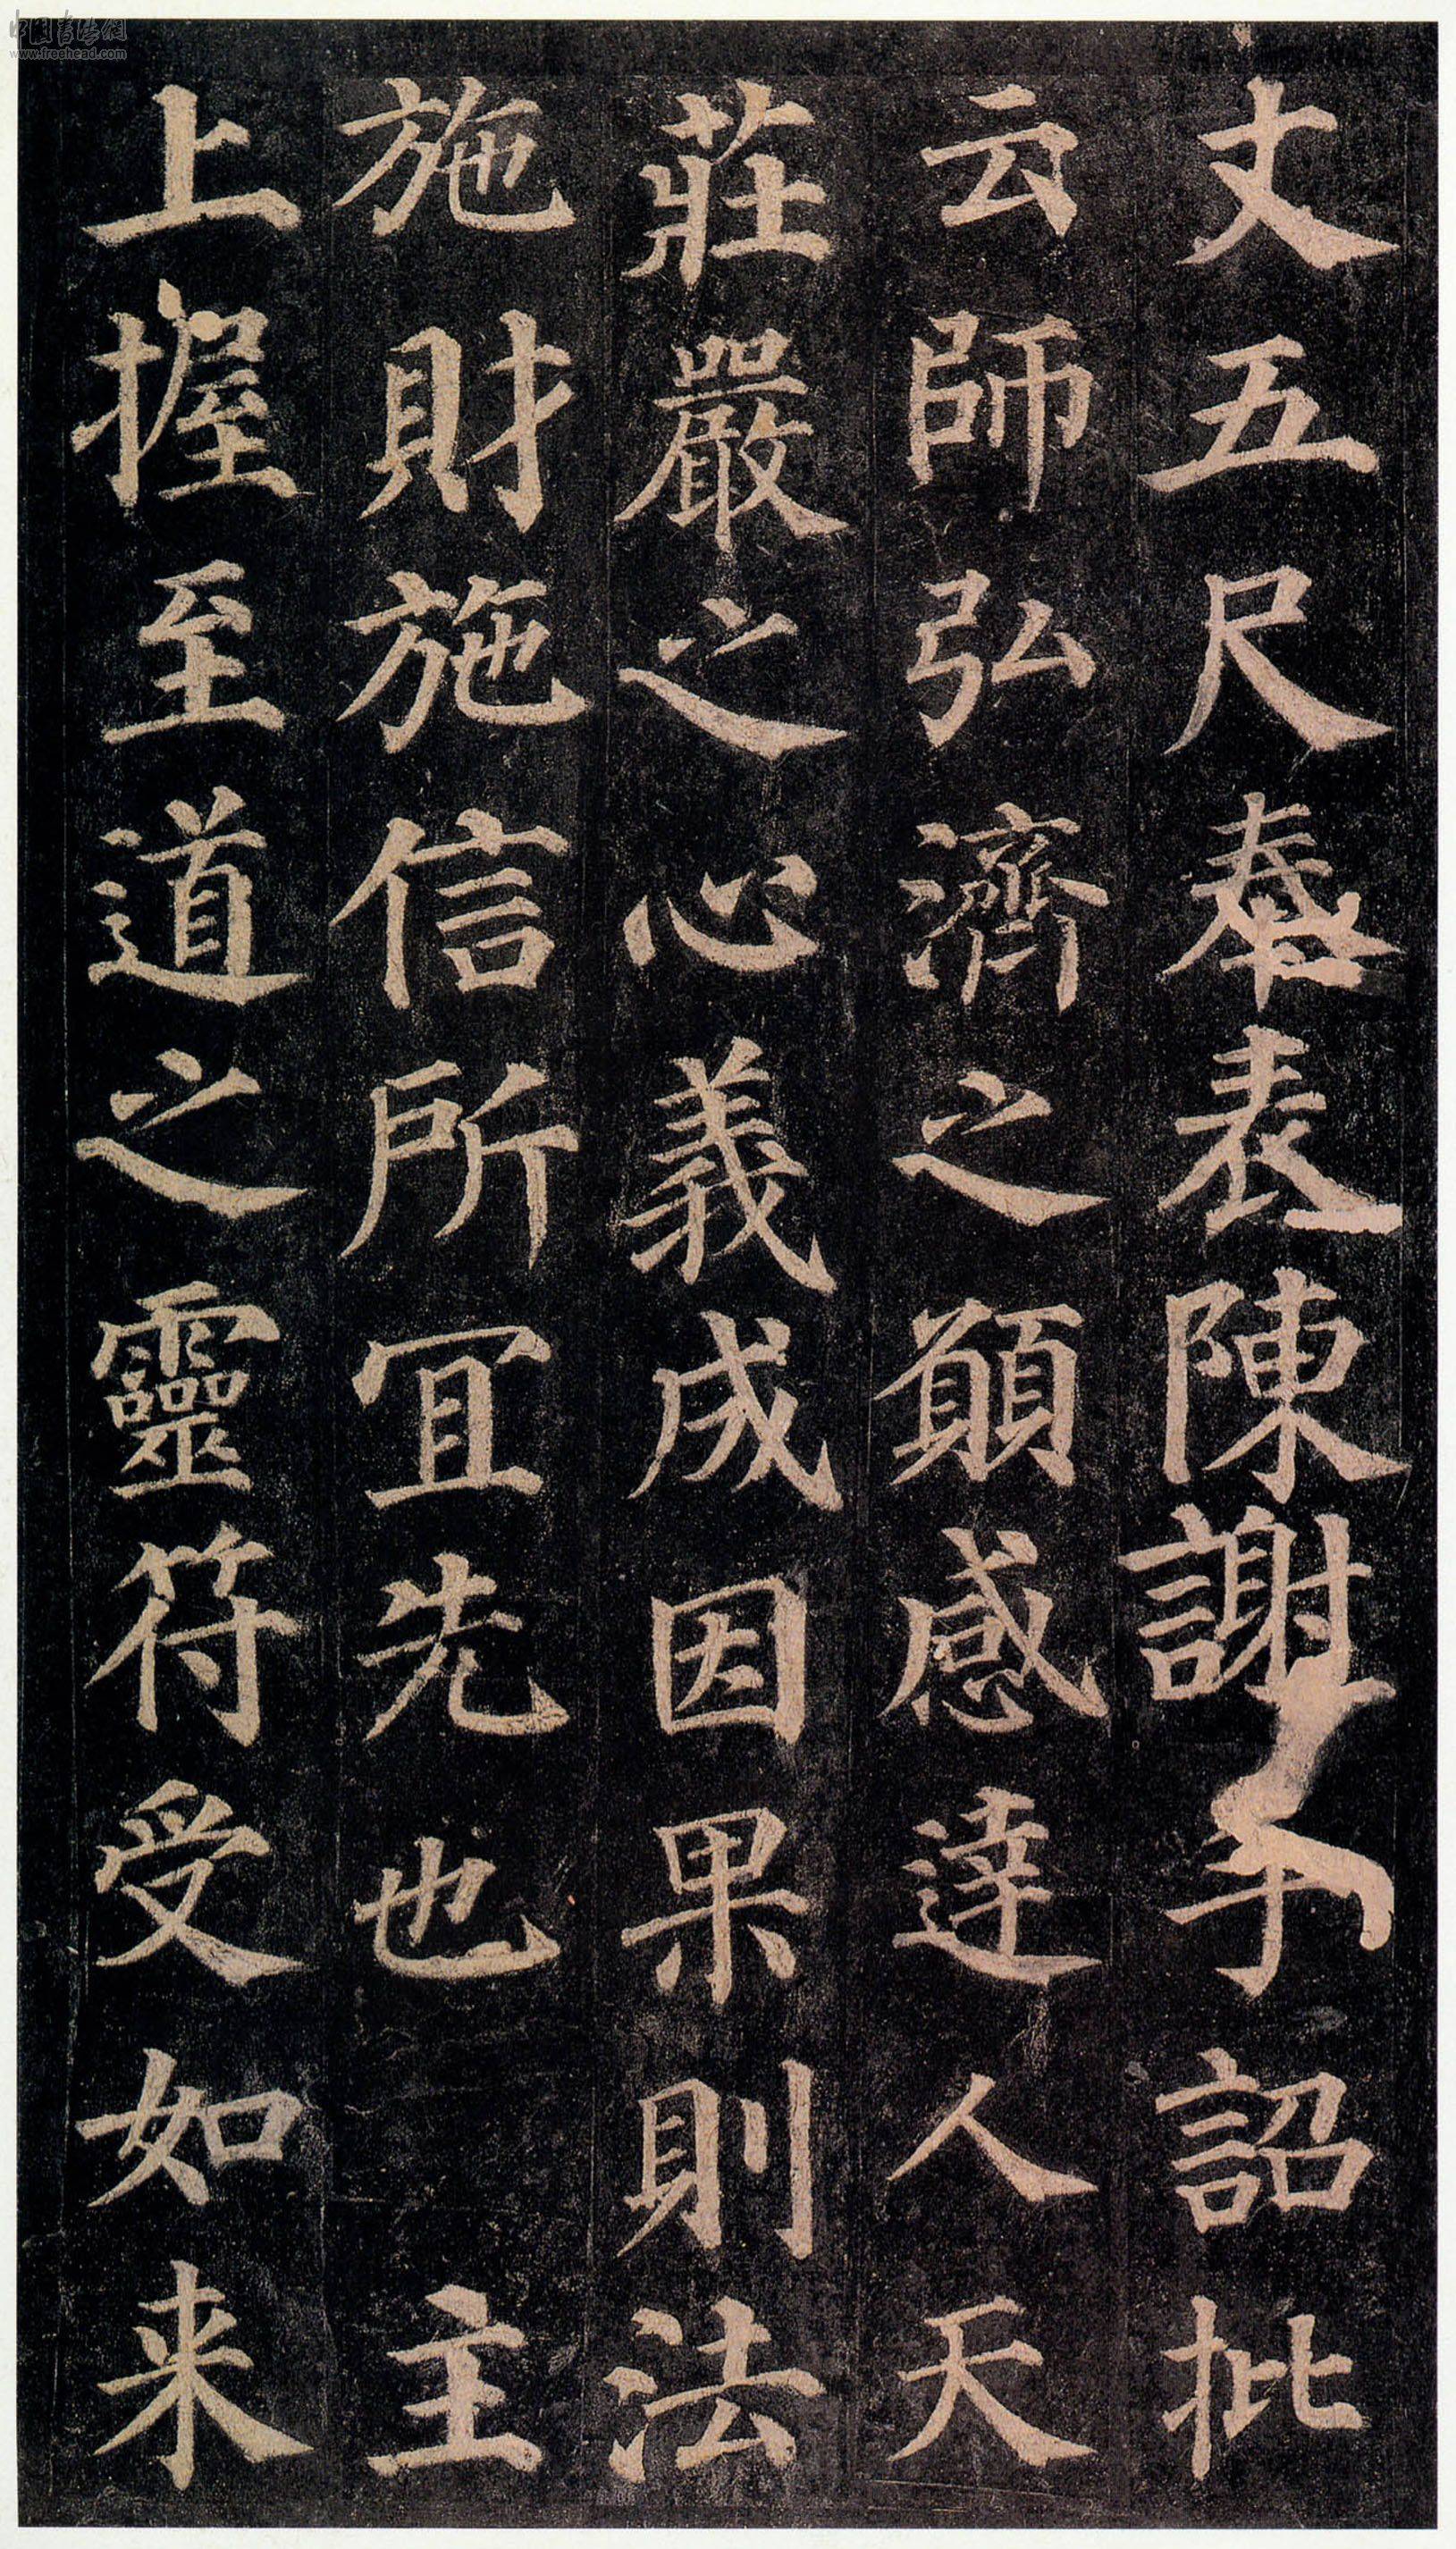 丈五尺奉表陳謝手詔批
云師弘濟之願感達人天
莊嚴之心義成因果則法
施財施信所宜先也 主
上握至道之靈符受如来
中国书法网
www.freehead.com